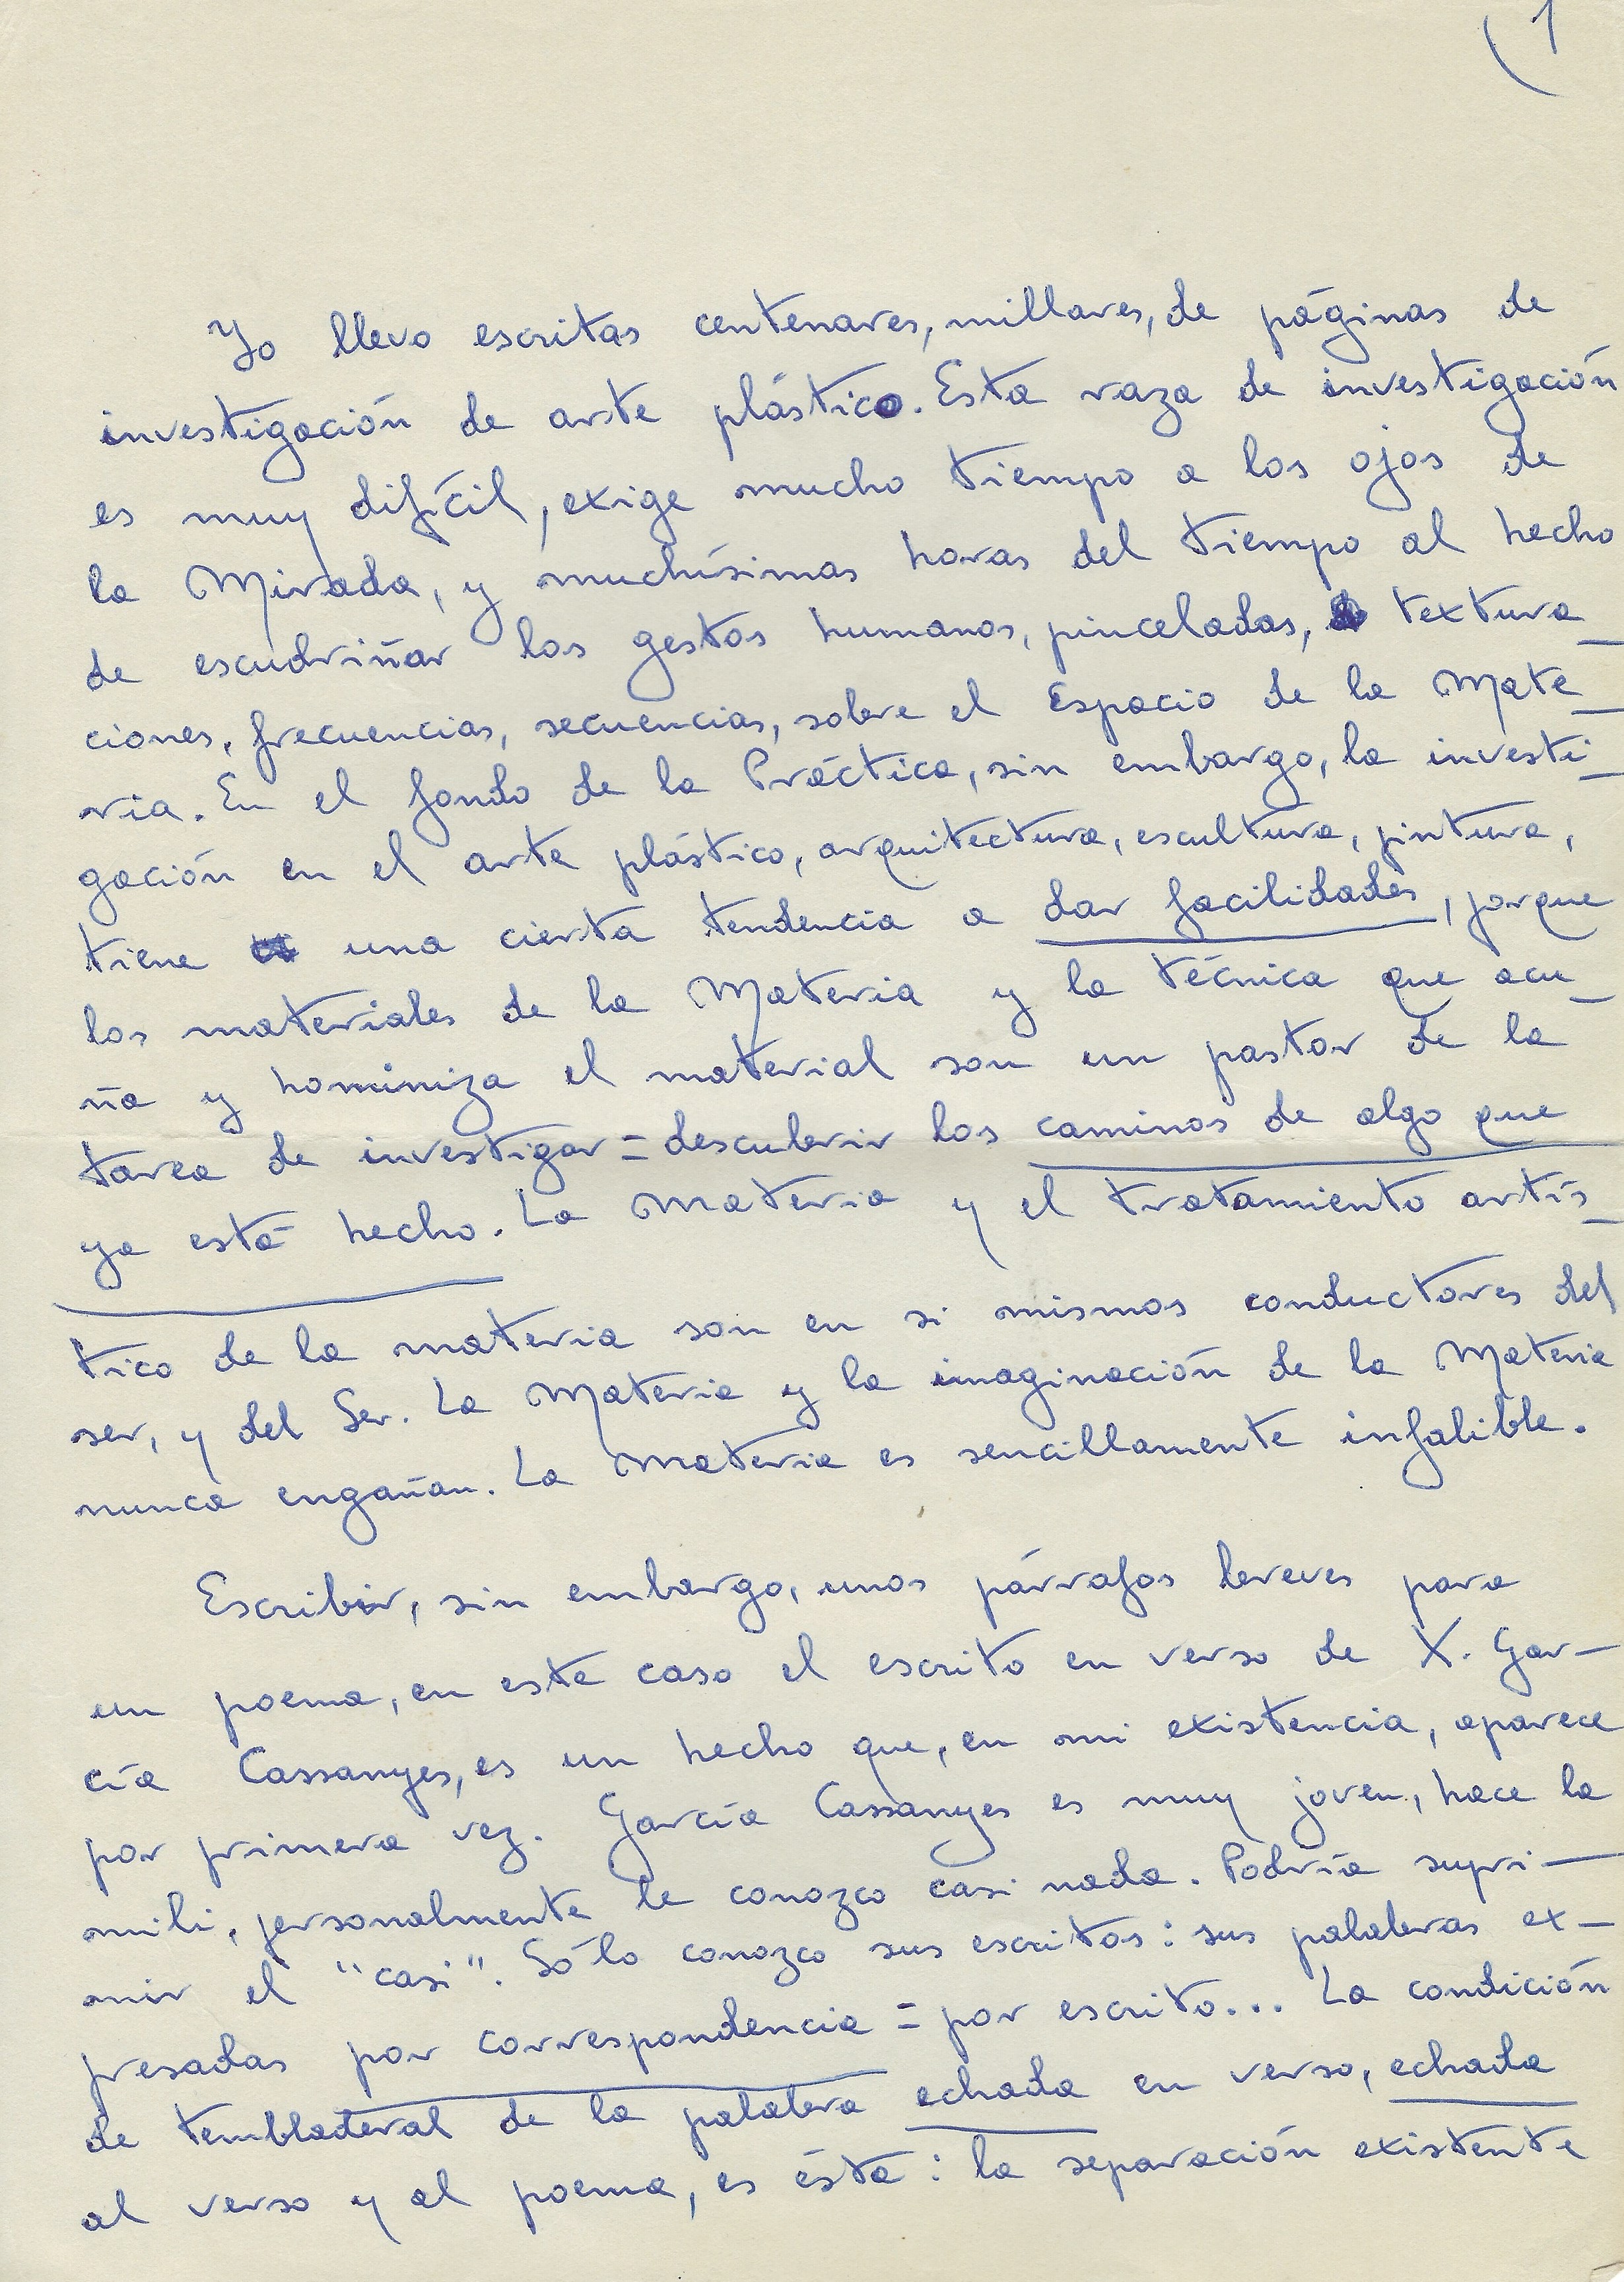 (1
Yo llevo escritas centenares, millares, de páginas de
investigación de arte plástico. Esta raza de investigación
es muy difícil, exige mucho tiempo a los ojos de
la Mirada, y muchísimas horas del tiempo al hecho
de escudriñar los gestos humanos, pinceladas, textura-
ciones, frecuencias, secuencias, sobre el Espacio de la Mate-
ria. En el fondo de la Práctica, sin embargo, la investi-
gación en el arte plástico, arquitectura, escultura, pintura,
tiene una cierta tendencia a dar facilidades, porque
los materiales de la Materia y la técnica que acu-
ña y hominiza el material son un pastor de la
tarea de investigar = descubrir los caminos de algo que
ya está hecho. La Materia y el tratamiento artís-
tico de la materia son en si mismos conductores del
ser, y del Ser. La Materia y la imaginación de la Materia
nunca engañan. La Materia es sencillamente infalible.
Escribir, sin embargo, unos párrafos breves para
un poema, en este caso el escrito en verso de X. Gar-
cía Cassanyes, es un hecho que, en mi existencia, aparece
por primera vez. García Cassanyes es muy joven, hace la
mili, personalmente le conozco casi nada. Podría supri-
mir el "casi". Sólo conozco sus escritos: sus palabras ex-
presadas por correspondencia = por escrito... La condición
de tembladeral de la palabra echada en verso, echada
al verso y al poema, es ésta: la separación existente